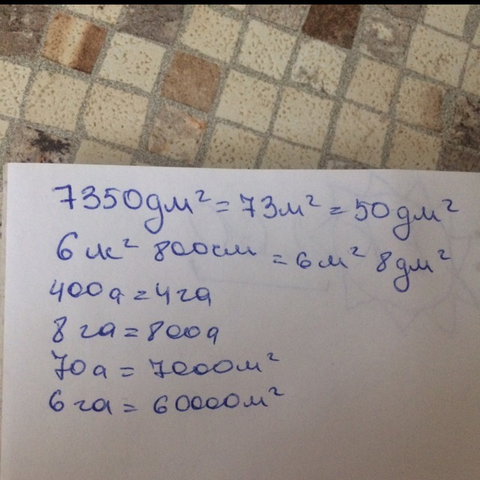 7350дм² = 73м² = 50дм²
6м² 800см = 6м² 8дм²
400а = 4га
8га = 800а
70а = 7000м²
6га = 60000м²